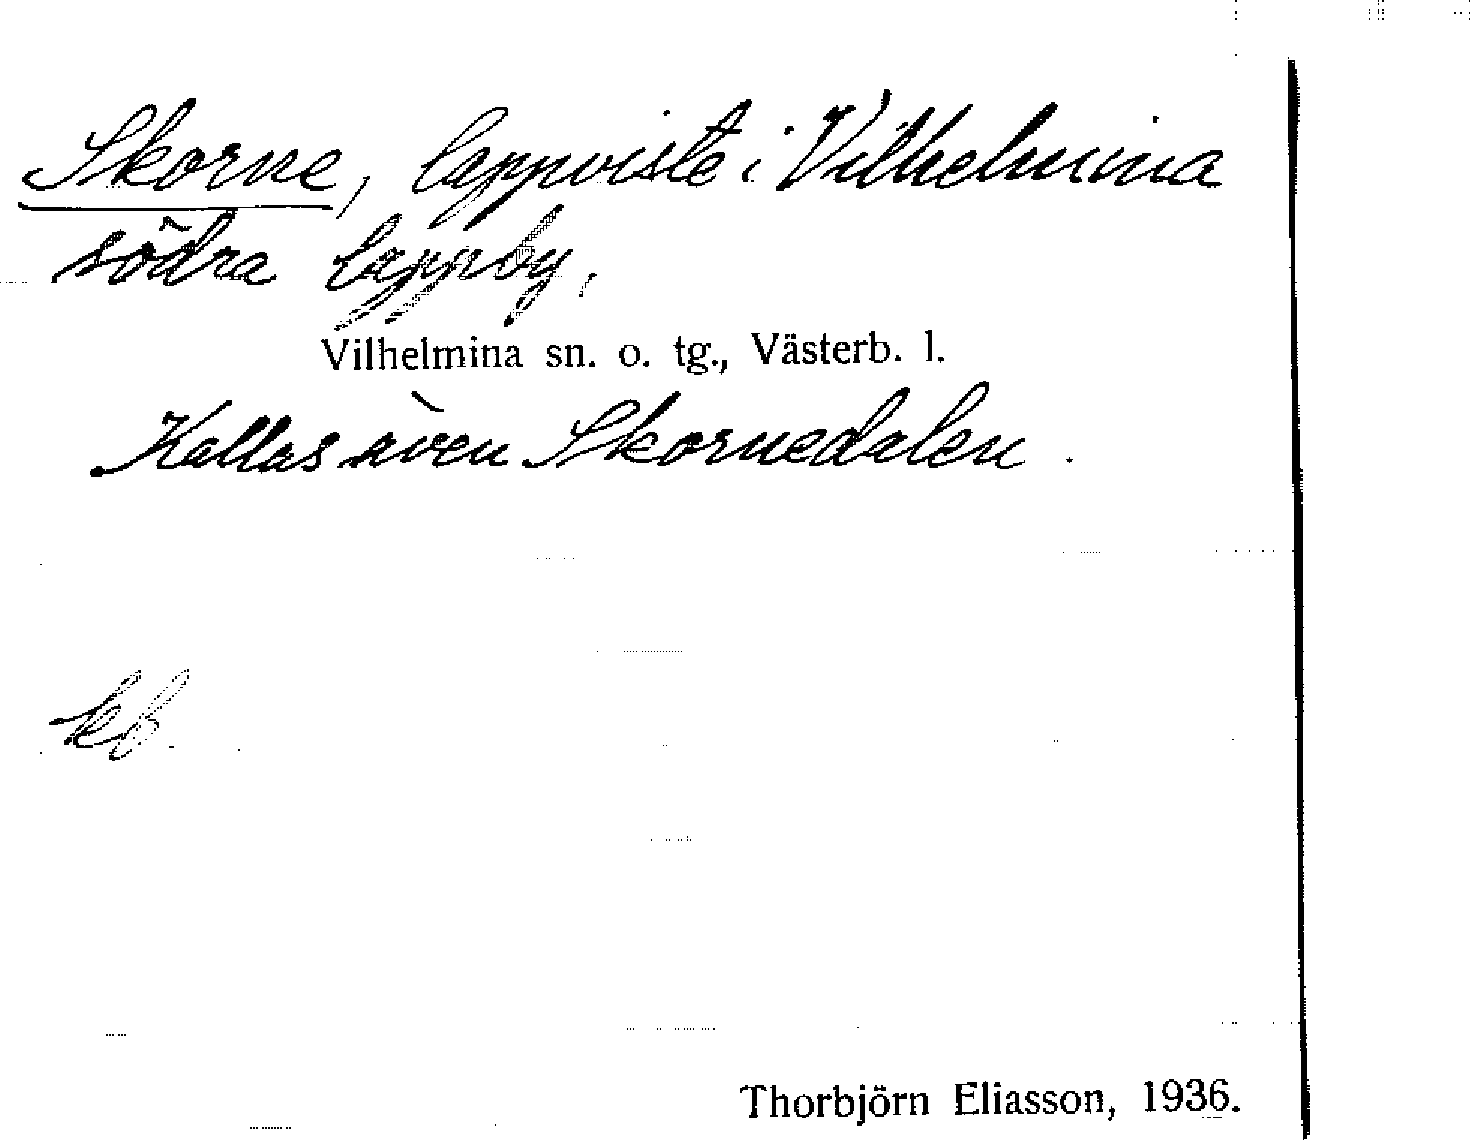 Skorne, lappviste i Vilhelmina
södra lappby,
Vilhelmina sn. o. tg., Västerb. l.
Kallas även Skornedalen.
kb
Thorbjörn Eliasson, 1936.